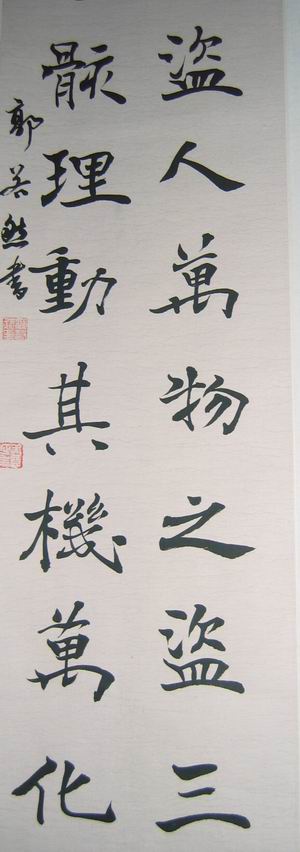 盜人萬物之盜三
骸理動其機萬化
郭若然書